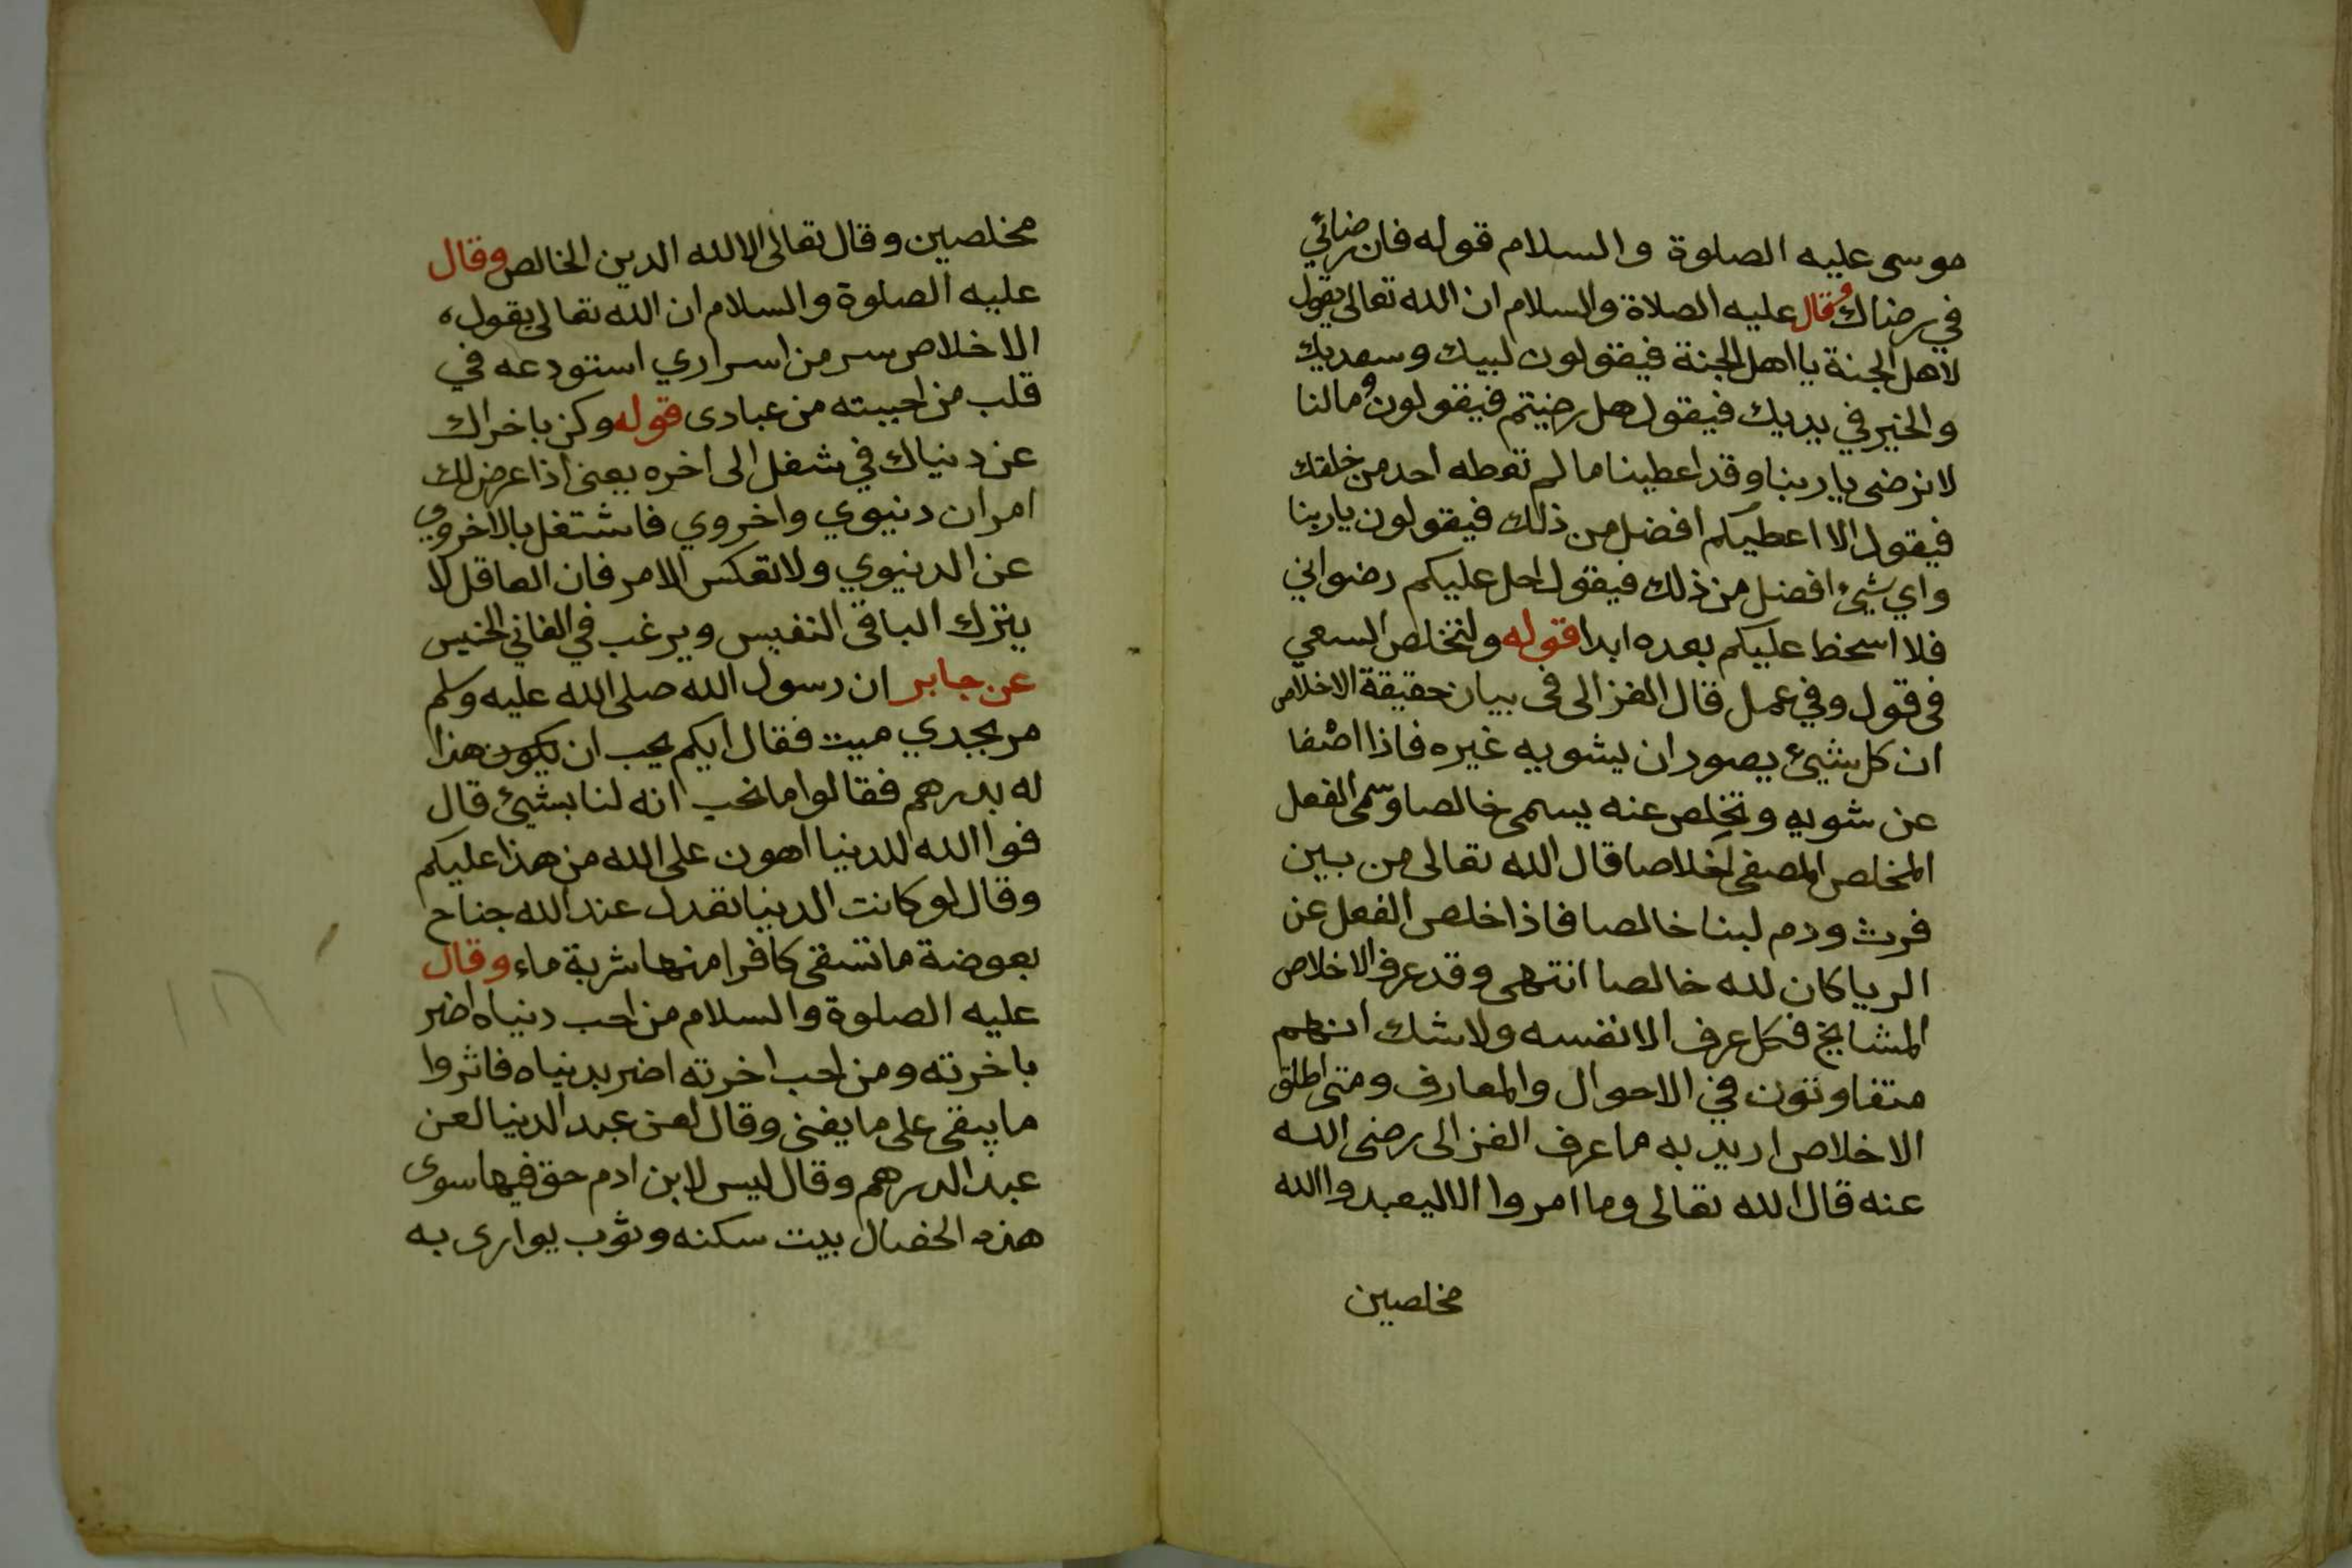 موسى عليه الصلوة والسلام قوله فان رضائي
في رضاك وقال عليه الصلاة والسلام ان الله تعالى يقول
لاهل الجنة يا اهل الجنة فيقولون لبيك وسعديك
والخير في يديك فيقول هل رضيتم فيقولون وما لنا
لا نرضى يا ربنا وقد اعطيتنا ما لم تعطه احد من خلقك
فيقول الا اعطيكم افضل من ذلك فيقولون يا ربنا
واي شيئ افضل من ذلك فيقول احل عليكم رضواني
فلا اسخط عليكم بعده ابدا قوله ولتخلص السعي
في قول وفي عمل قال الغزالي في بيان حقيقة الاخلاص
ان كل شيئ يصور ان يشوبه غيره فاذا اصفا
عن شوبه وتخلص عنه يسمى خالصا وسمى الفعل
المخلص المصفى اخلاصا قال الله تعالى من بين
فرث ودم لبنا خالصا فاذا خلص الفعل عن
الريا كان لله خالصا انتهى وقد عرف الاخلاص
المشايخ فكل عرف الا نفسه ولا شك انهم
متفاوتون في الاحوال والمعارف ومتى اطلق
الاخلاص اريد به مما عرف الغزالى رضى الله
عنه قال الله تعالى وما امروا الا ليعبدوا الله
مخلصين
مخلصين وقال تعالى الا لله الدين الخالص وقال
عليه الصلوة والسلام ان الله تعالى يقول
الاخلاص سر من اسراري استودعه في
قلب من احببته من عبادى قوله وكن باخراك
عن دنياك في شغل الى اخره يعنى اذا عرض لك
امران دنيوي واخروي فاشتغل بالاخروي
عن الدنيوي ولا تعكس الامر فان العاقل لا
يترك الباقى النفيس ويرغب في الفاني الخسيس
عن جابر ان رسول الله صلى الله عليه وسلم
مر بجدي ميت فقال ايكم يحب ان يكون هذا
له بدرهم فقالوا ما نحب انه لنا بشيئ قال
فوا الله للدنيا اهون على الله من هذا عليكم
وقال لو كانت الدنيا تعدل عند الله جناح
بعوضة ما تسقى كافرا منها شربة ماء وقال
عليه الصلوة والسلام من احب دنياه اضر
باخرته ومن احب اخرته اضر بدنياه فاثروا
ما يبقى على ما يفنى وقال لعن عبد الدنيا لعن
عبد الدرهم وقال ليس لابن ادم حق فيها سوى
هذه الخصال بيت سكنه وثوب يوارى به